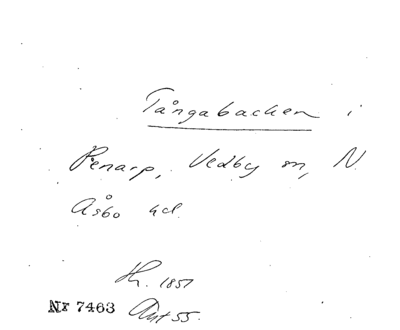 Tångabacken i
Penarp, Vedby sn, N
Åsbo hd.
1851
Nr 7463 Ant 55.